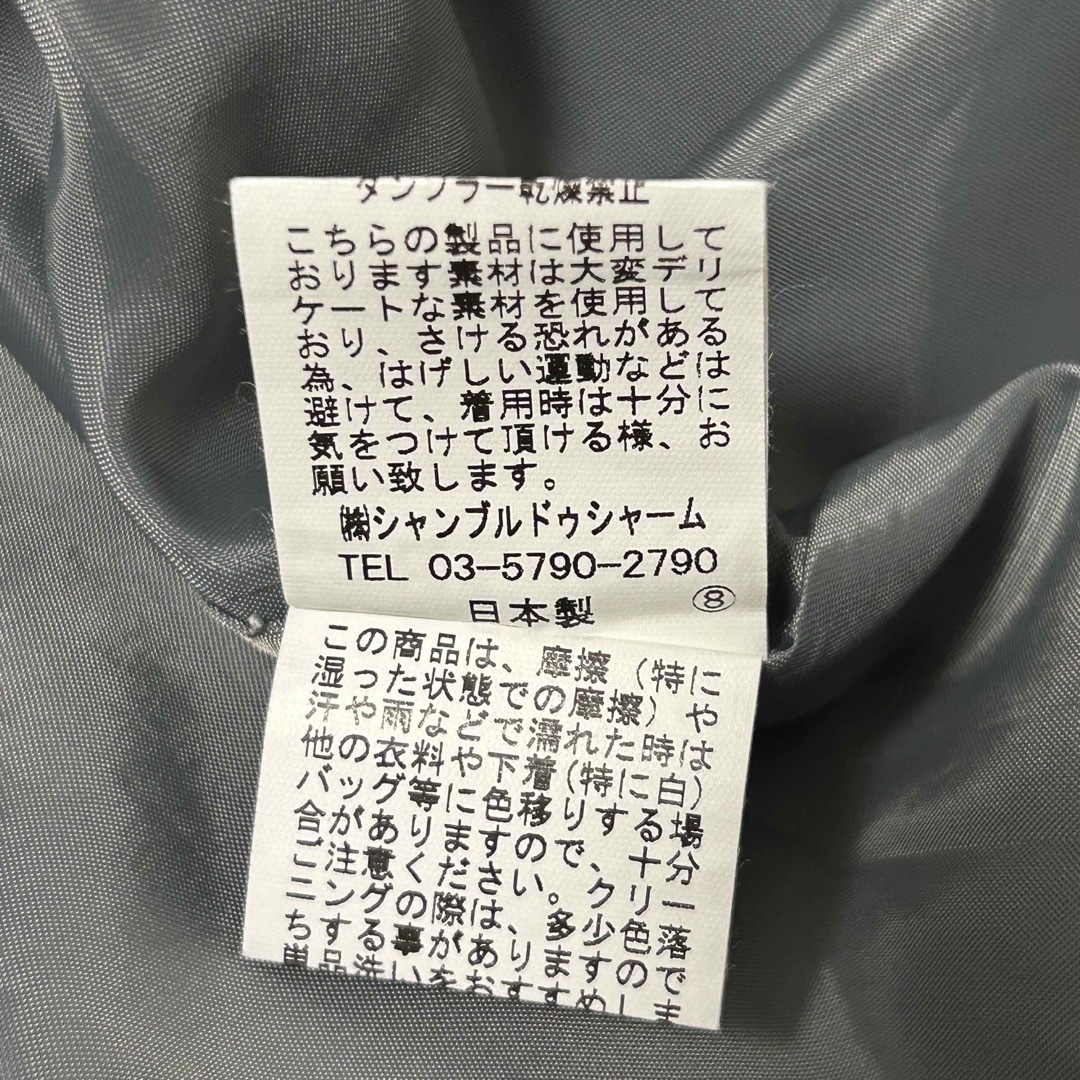 タンブラー乾燥禁止
こちらの製品に使用して
おります素材は大変デリ
ケートな素材を使用して
おり、さける恐れがある
為、はげしい運動などは
避けて、着用時は十分に
気をつけて頂ける様、お
願い致します。
㈱シャンブルドゥシャーム
TEL 03-5790-2790
日本製 ⑧
この商品は、摩擦(特に
湿った状態での摩擦)や
汗や雨などで濡れた時は
他の衣料や下着(特に白)
バッグ等に色移りする場
合がありますので、十分
ご注意ください。クリー
ニングの際は、少色落
ちする事があります
単品洗いをおすすめしま